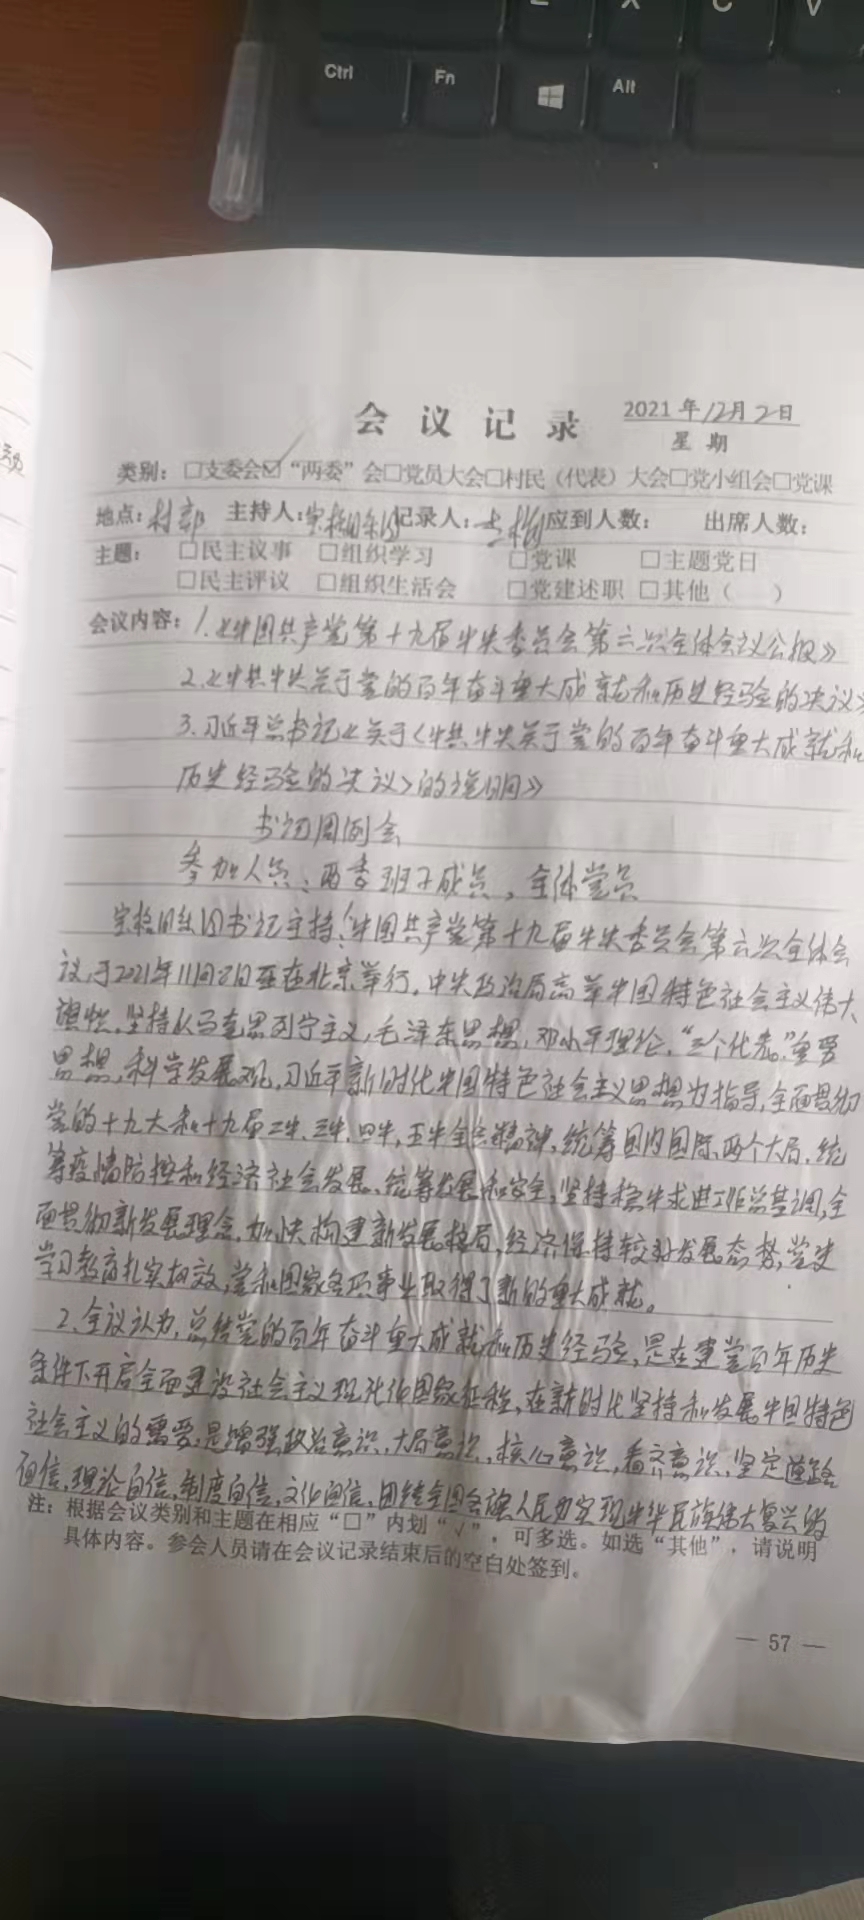 Ctrl Fn Alt
Z X C V
会议记录 2021年12月2日
星期
类别：□支委会☑“两委”会□党员大会□村民（代表）大会□党小组会□党课
地点：村部 主持人： 记录人： 应到人数： 出席人数：
主题： □民主议事 □组织学习 □党课 □主题党日
□民主评议 □组织生活会 □党建述职 □其他（ ）
会议内容：1.《中国共产党第十九届中央委员会第六次全体会议公报》
2.《中共中央关于党的百年奋斗重大成就和历史经验的决议》
3.习近平总书记《关于〈中共中央关于党的百年奋斗重大成就和
历史经验的决议〉的说明》
周例会
参加人员：两委班子成员，全体党员
书记主持：中国共产党第十九届中央委员会第六次全体会
议，于2021年11月8日至在北京举行，中央政治局高举中国特色社会主义伟大
旗帜，坚持以马克思列宁主义，毛泽东思想，邓小平理论，“三个代表”重要
思想，科学发展观，习近平新时代中国特色社会主义思想为指导，全面贯彻
党的十九大和十九届二中、三中、四中、五中全会精神，统筹国内国际两个大局，统
筹疫情防控和经济社会发展，统筹发展和安全，坚持稳中求进工作总基调，全
面贯彻新发展理念，加快构建新发展格局，经济保持较好发展态势，党史
学习教育扎实有效，党和国家各项事业取得了新的重大成就。
2.全议认为，总结党的百年奋斗重大成就和历史经验，是在建党百年历史
条件下开启全面建设社会主义现代化国家征程，在新时代坚持和发展中国特色
社会主义的需要，是增强政治意识，大局意识，核心意识，看齐意识，坚定道路
自信，理论自信，制度自信，文化自信，团结全国各族人民为实现中华民族伟大复兴的
注：根据会议类别和主题在相应“□”内划“√”，可多选。如选“其他”，请说明
具体内容。参会人员请在会议记录结束后的空白处签到。
— 57 —